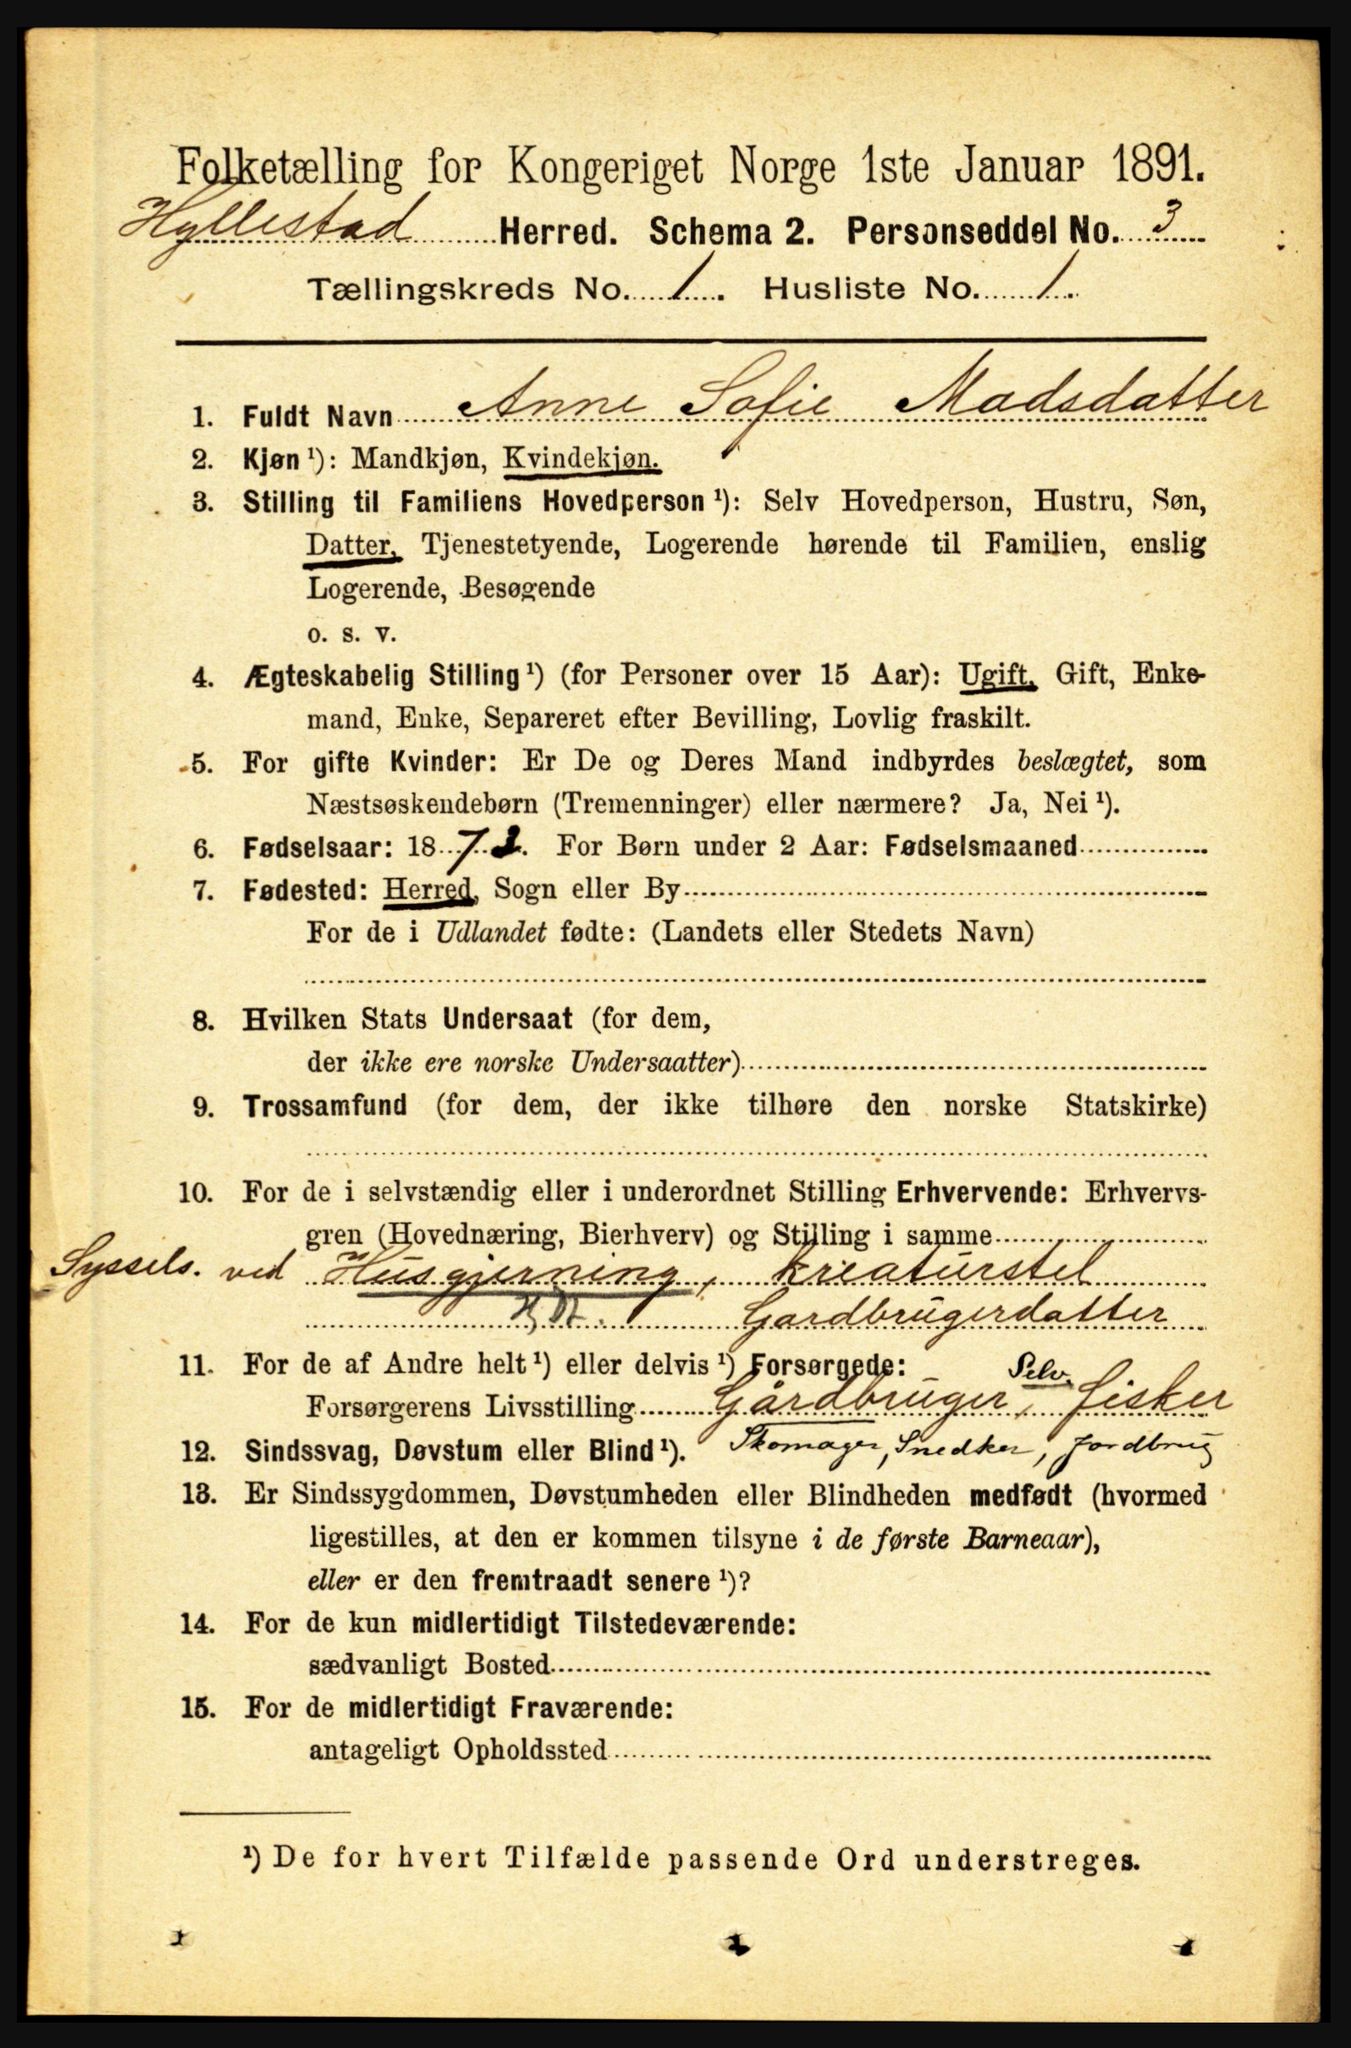 Folketælling for Kongeriget Norge 1ste Januar 1891.
Hyllestad Herred. Schema 2. Personseddel No. 3
Tællingskreds No. 1. Husliste No. 1.
1. Fuldt Navn Anne Sofie Madsdatter
2. Kjøn ¹): Mandkjøn, Kvindekjøn.
3. Stilling til Familiens Hovedperson ¹): Selv Hovedperson, Hustru, Søn,
Datter, Tjenestetyende, Logerende hørende til Familien, enslig
Logerende, Besøgende
o. s. v.
4. Ægteskabelig Stilling ¹) (for Personer over 15 Aar): Ugift, Gift, Enke-
mand, Enke, Separeret efter Bevilling, Lovlig fraskilt.
5. For gifte Kvinder: Er De og Deres Mand indbyrdes beslægtet, som
Næstsøskendebørn (Tremenninger) eller nærmere? Ja, Nei ¹).
6. Fødselsaar: 187. For Børn under 2 Aar: Fødselsmaaned
7. Fødested: Herred, Sogn eller By
For de i Udlandet fødte: (Landets eller Stedets Navn)
8. Hvilken Stats Undersaat (for dem,
der ikke ere norske Undersaatter)
9. Trossamfund (for dem, der ikke tilhøre den norske Statskirke)
10. For de i selvstændig eller i underordnet Stilling Erhvervende: Erhvervs-
gren (Hovednæring, Bierhverv) og Stilling i samme
Syssels. ved Husgjerning, kreaturstel
Gardbrugerdatter
11. For de af Andre helt ¹) eller delvis ¹) Forsørgede: Selv.
Forsørgerens Livsstilling Gårdbruger, fisker
12. Sindssvag, Døvstum eller Blind ¹). Skomager, Snedker, Jordbrug
13. Er Sindssygdommen, Døvstumheden eller Blindheden medfødt (hvormed
ligestilles, at den er kommen tilsyne i de første Barneaar),
eller er den fremtraadt senere ¹)?
14. For de kun midlertidigt Tilstedeværende:
sædvanligt Bosted
15. For de midlertidigt Fraværende:
antageligt Opholdssted
¹) De for hvert Tilfælde passende Ord understreges.